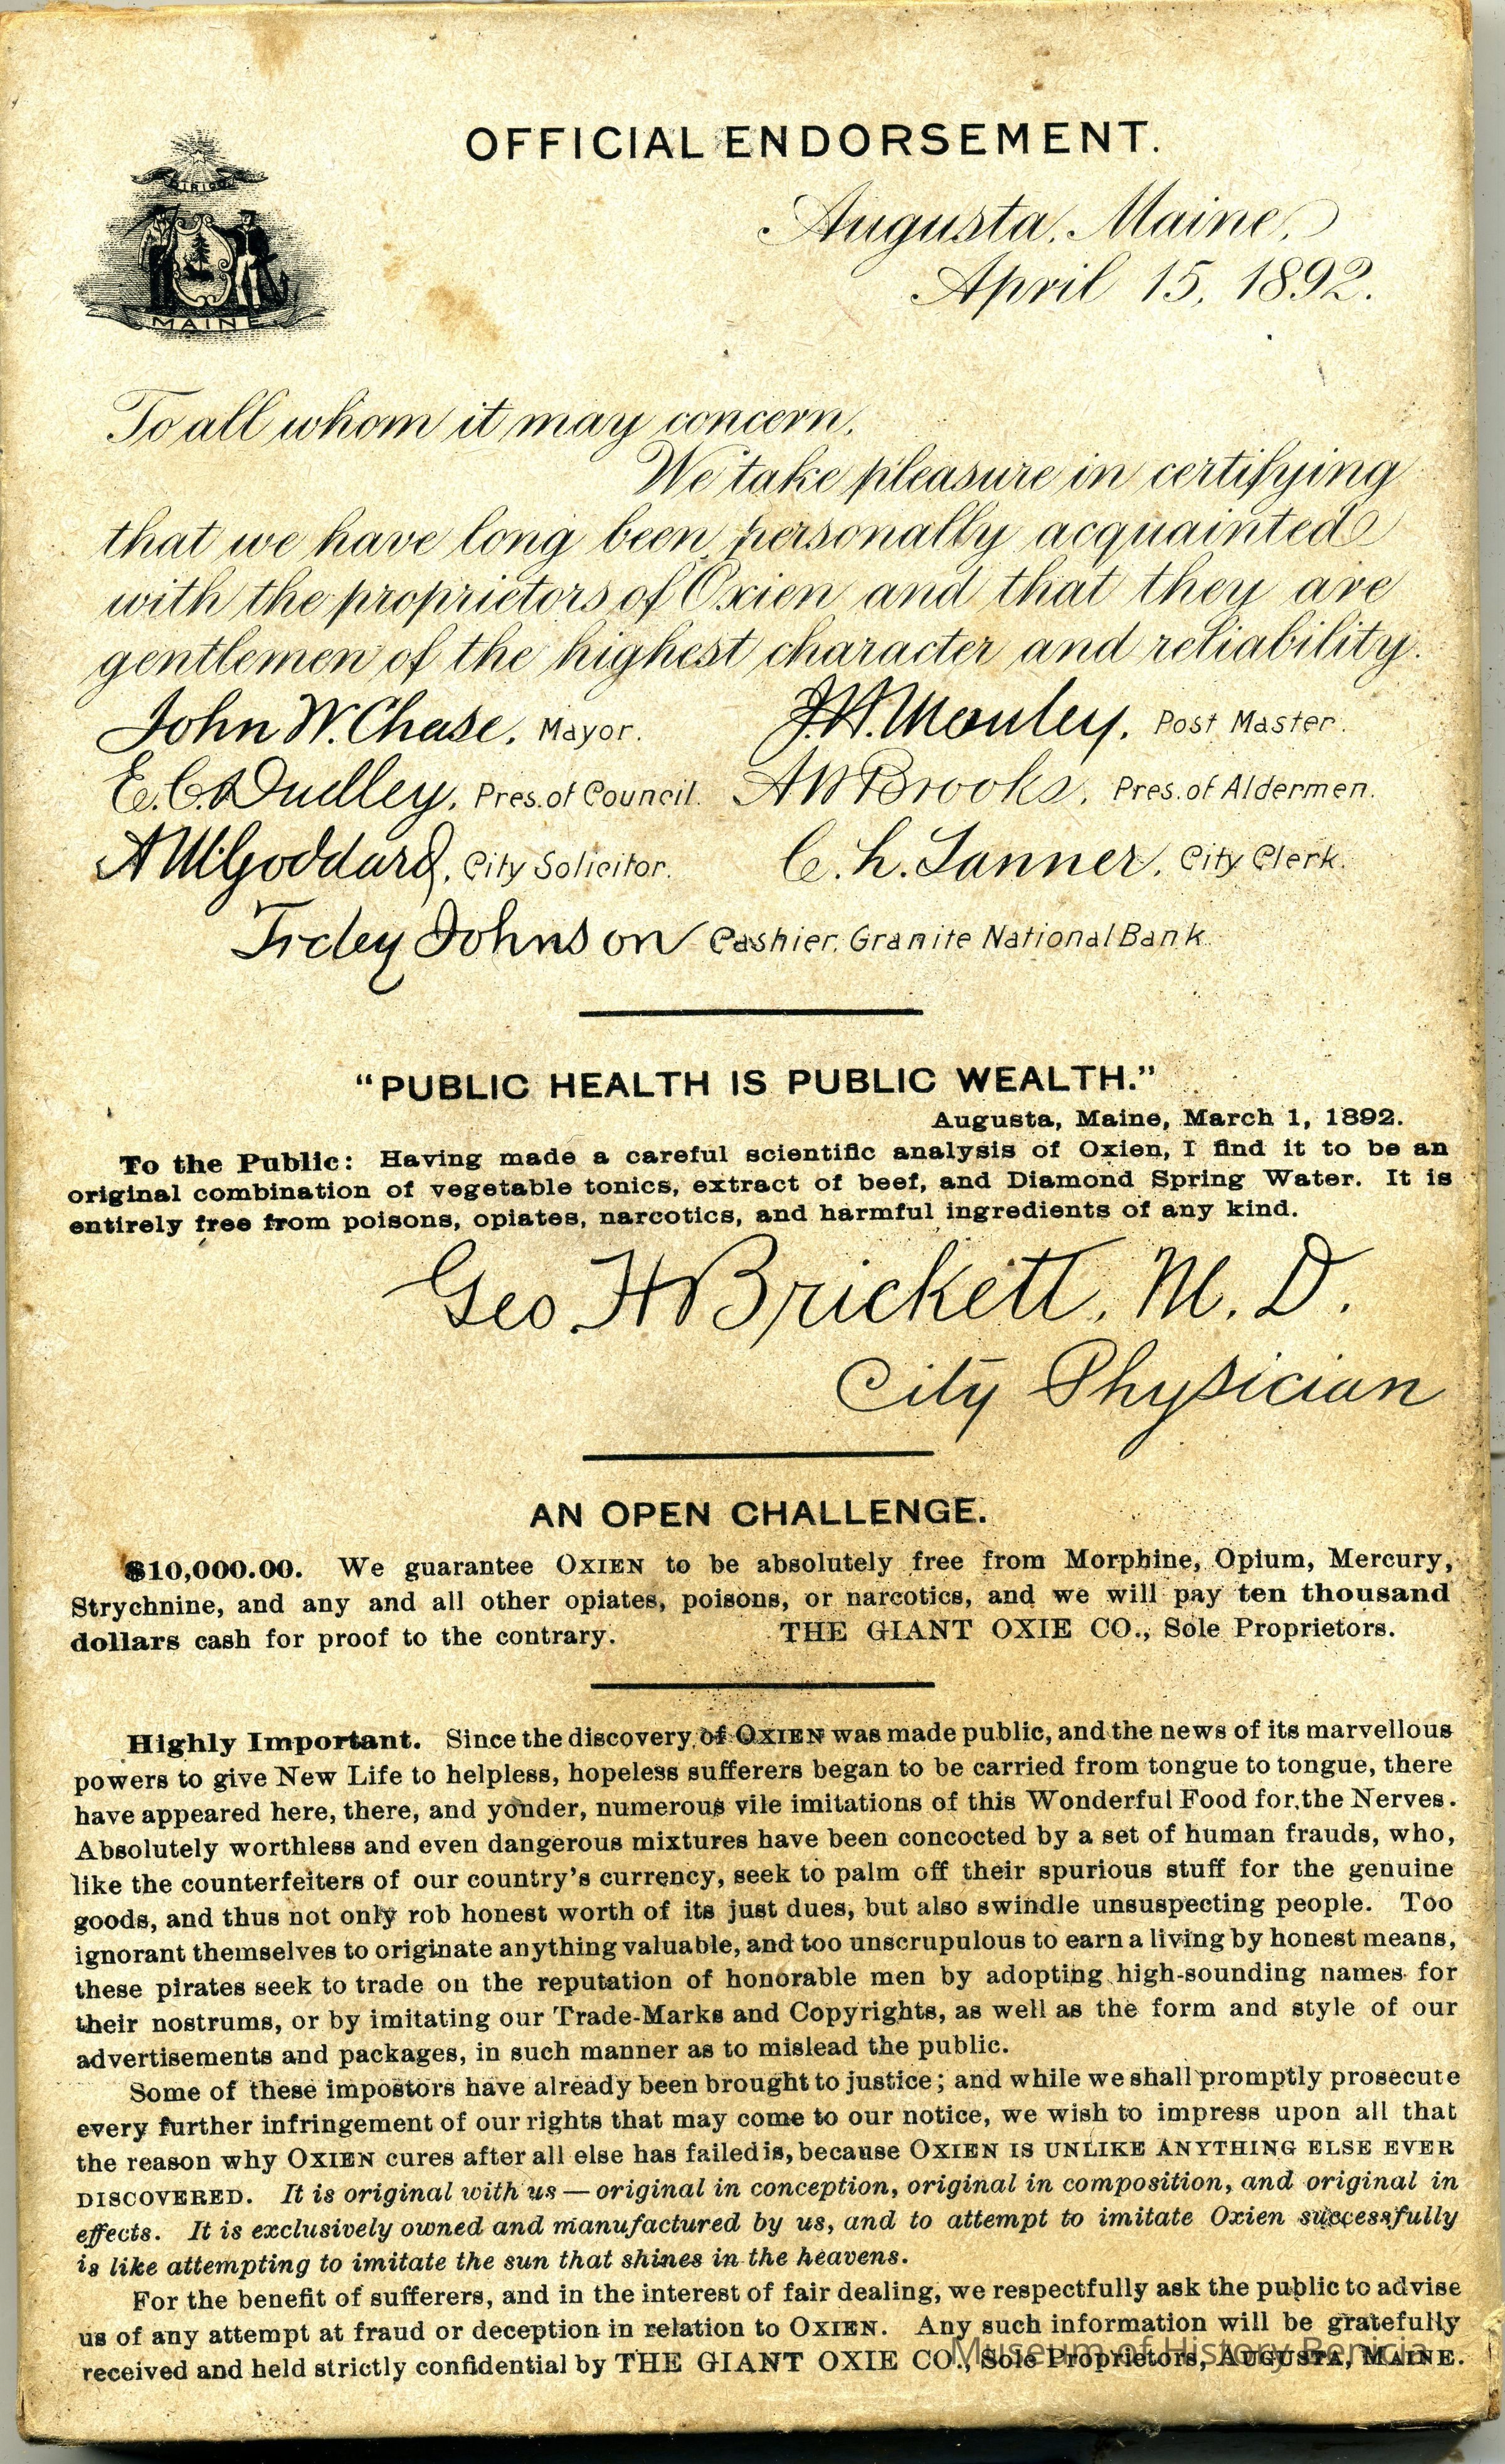 OFFICIAL ENDORSEMENT.
DIRIGO
MAINE
Augusta, Maine,
April 15, 1892.
To all whom it may concern,
We take pleasure in certifying
that we have long been personally acquainted
with the proprietors of Oxien and that they are
gentlemen of the highest character and reliability.
John W. Chase, Mayor. J.H. Manley, Post Master.
E.C. Dudley, Pres. of Council. A W Brooks, Pres. of Aldermen.
A M Goddard, City Solicitor. C. h. Tanner, City Clerk.
Treby Johnson Cashier, Granite National Bank.
"PUBLIC HEALTH IS PUBLIC WEALTH."
Augusta, Maine, March 1, 1892.
To the Public: Having made a careful scientific analysis of Oxien, I find it to be an
original combination of vegetable tonics, extract of beef, and Diamond Spring Water. It is
entirely free from poisons, opiates, narcotics, and harmful ingredients of any kind.
Geo. H Brickett, M. D.
City Physician
AN OPEN CHALLENGE.
$10,000.00. We guarantee OXIEN to be absolutely free from Morphine, Opium, Mercury,
Strychnine, and any and all other opiates, poisons, or narcotics, and we will pay ten thousand
dollars cash for proof to the contrary. THE GIANT OXIE CO., Sole Proprietors.
Highly Important. Since the discovery of OXIEN was made public, and the news of its marvellous
powers to give New Life to helpless, hopeless sufferers began to be carried from tongue to tongue, there
have appeared here, there, and yonder, numerous vile imitations of this Wonderful Food for the Nerves.
Absolutely worthless and even dangerous mixtures have been concocted by a set of human frauds, who,
like the counterfeiters of our country's currency, seek to palm off their spurious stuff for the genuine
goods, and thus not only rob honest worth of its just dues, but also swindle unsuspecting people. Too
ignorant themselves to originate anything valuable, and too unscrupulous to earn a living by honest means,
these pirates seek to trade on the reputation of honorable men by adopting high-sounding names for
their nostrums, or by imitating our Trade-Marks and Copyrights, as well as the form and style of our
advertisements and packages, in such manner as to mislead the public.
Some of these impostors have already been brought to justice; and while we shall promptly prosecute
every further infringement of our rights that may come to our notice, we wish to impress upon all that
the reason why OXIEN cures after all else has failed is, because OXIEN IS UNLIKE ANYTHING ELSE EVER
DISCOVERED. It is original with us — original in conception, original in composition, and original in
effects. It is exclusively owned and manufactured by us, and to attempt to imitate Oxien successfully
is like attempting to imitate the sun that shines in the heavens.
For the benefit of sufferers, and in the interest of fair dealing, we respectfully ask the public to advise
us of any attempt at fraud or deception in relation to OXIEN. Any such information will be gratefully
received and held strictly confidential by THE GIANT OXIE CO., Sole Proprietors, AUGUSTA, MAINE.
Museum of History Benicia